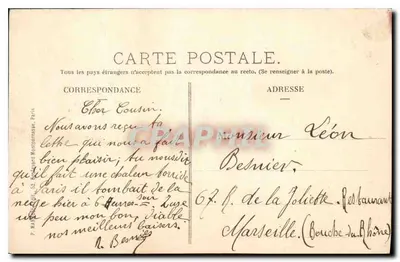 CARTE POSTALE.
Tous les pays étrangers n'acceptent pas la correspondance au recto. (Se renseigner à la poste).
CORRESPONDANCE
ADRESSE
Cher Cousin.
Nous avons reçu ta
lettre qui nous a fait
bien plaisir; tu nous dis
qu'il fait une chaleur torride
à Paris il tombait de la
neige hier à 6 heures
un peu mon bon
nos meilleurs baisers.
Monsieur Léon
Besnier.
67 R. de la Joliette. Restaurant
Marseille. (Bouche du Rhône)